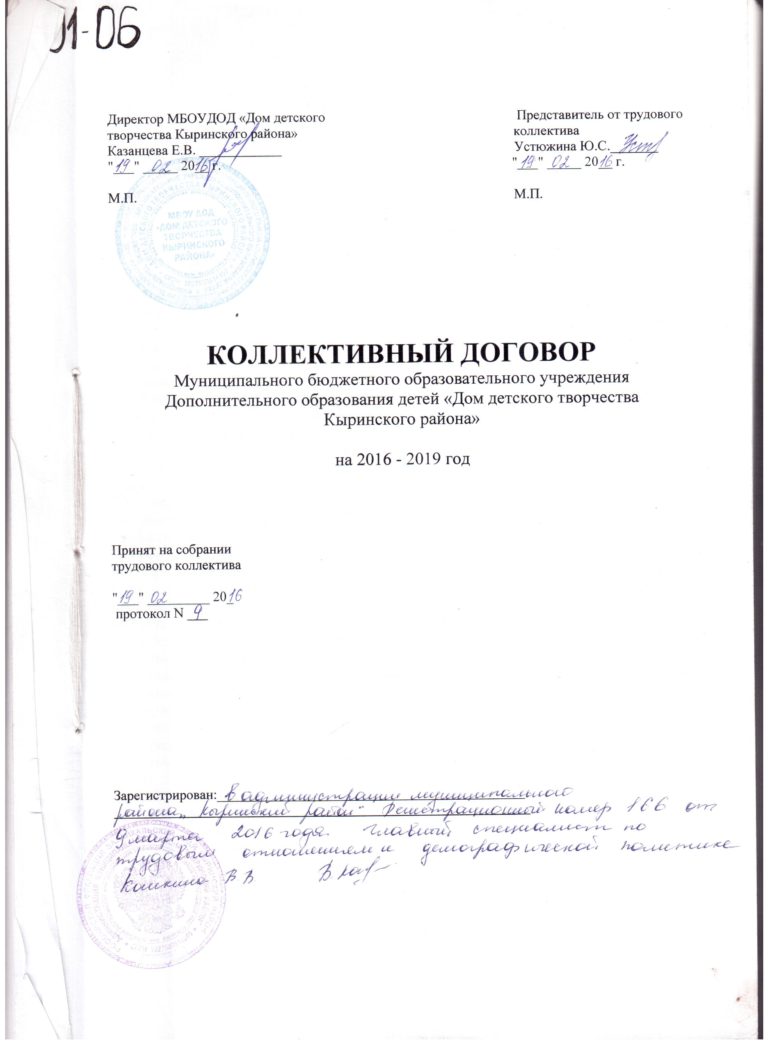 11-06
Директор МБОУДОД «Дом детского
творчества Кыринского района»
Казанцева Е.В.____________
"19" 02 2016 г.
М.П.
Представитель от трудового
коллектива
Устюжина Ю.С.
"19" 02 2016 г.
М.П.
МБОУ ДОД
«ДОМ ДЕТСКОГО
ТВОРЧЕСТВА
КЫРИНСКОГО
РАЙОНА»
КОЛЛЕКТИВНЫЙ ДОГОВОР
Муниципального бюджетного образовательного учреждения
Дополнительного образования детей «Дом детского творчества
Кыринского района»
на 2016 - 2019 год
Принят на собрании
трудового коллектива
"19" 02 2016
протокол N 9
Зарегистрирован: в администрации муниципального
района „Кыринский район" Регистрационный номер 166 от
9 марта 2016 года. Главный специалист по
трудовым отношениям и демографической политике
В В